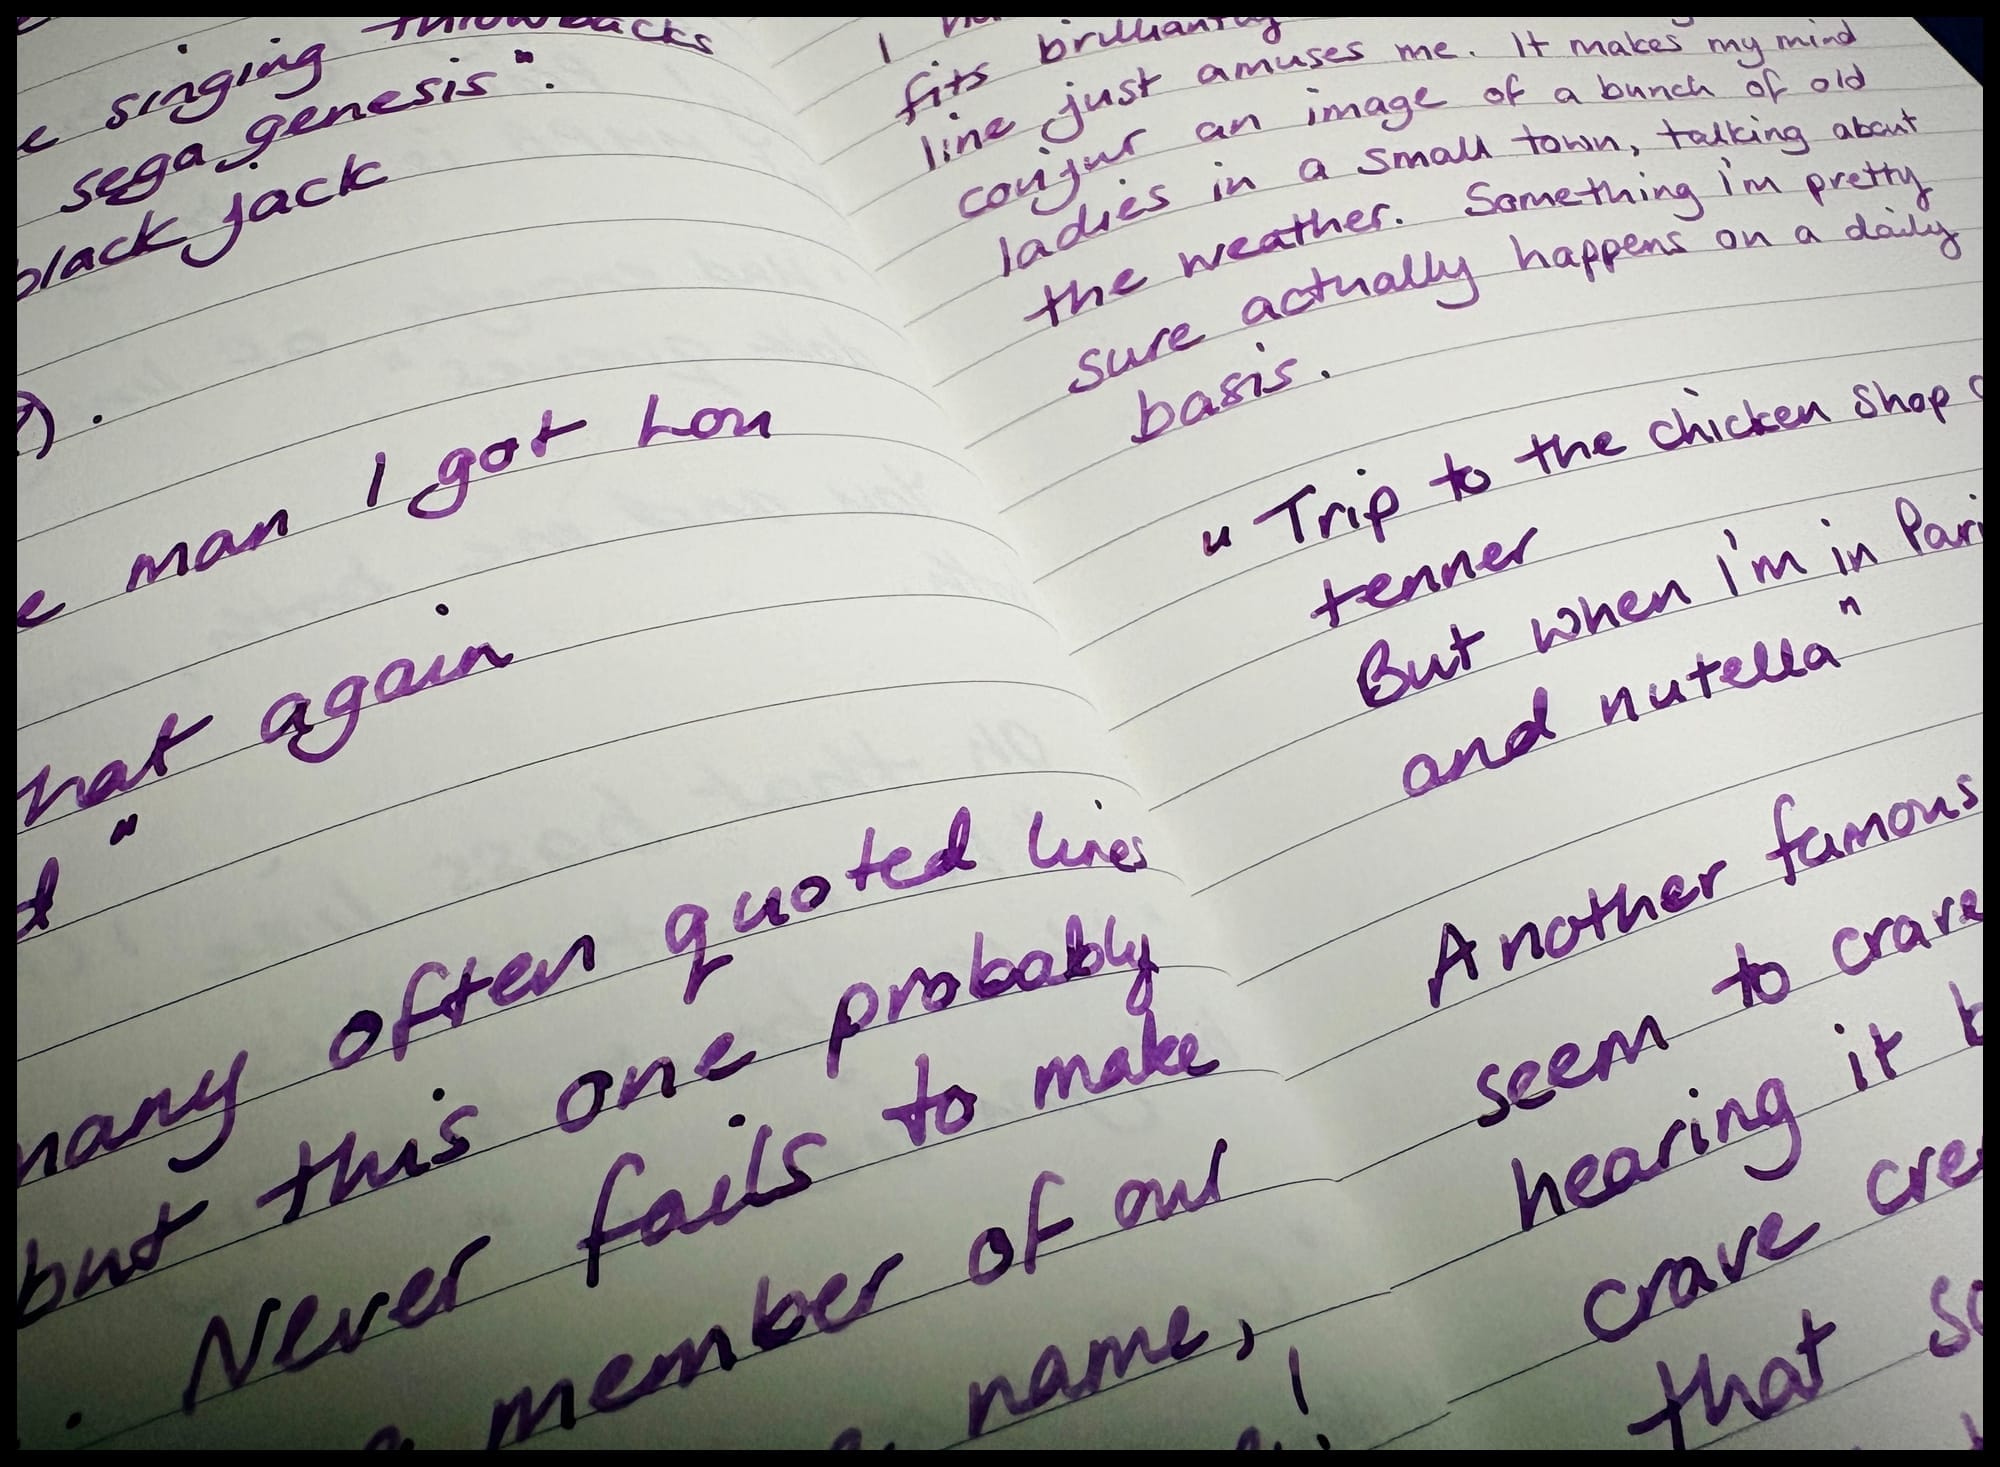 singing throwbacks
sega genesis".
black jack
man I got Lou
hat again
"
many often quoted lines
but this one probably
. Never fails to make
member of our
name,
fits brilliantly
line just amuses me. It makes my mind
conjur an image of a bunch of old
ladies in a small town, talking about
the weather. Something i'm pretty
sure actually happens on a daily
basis.
"Trip to the chicken shop
tenner
But when I'm in Pari
and nutella"
Another famous
seem to crave
hearing it
crave cre
that so